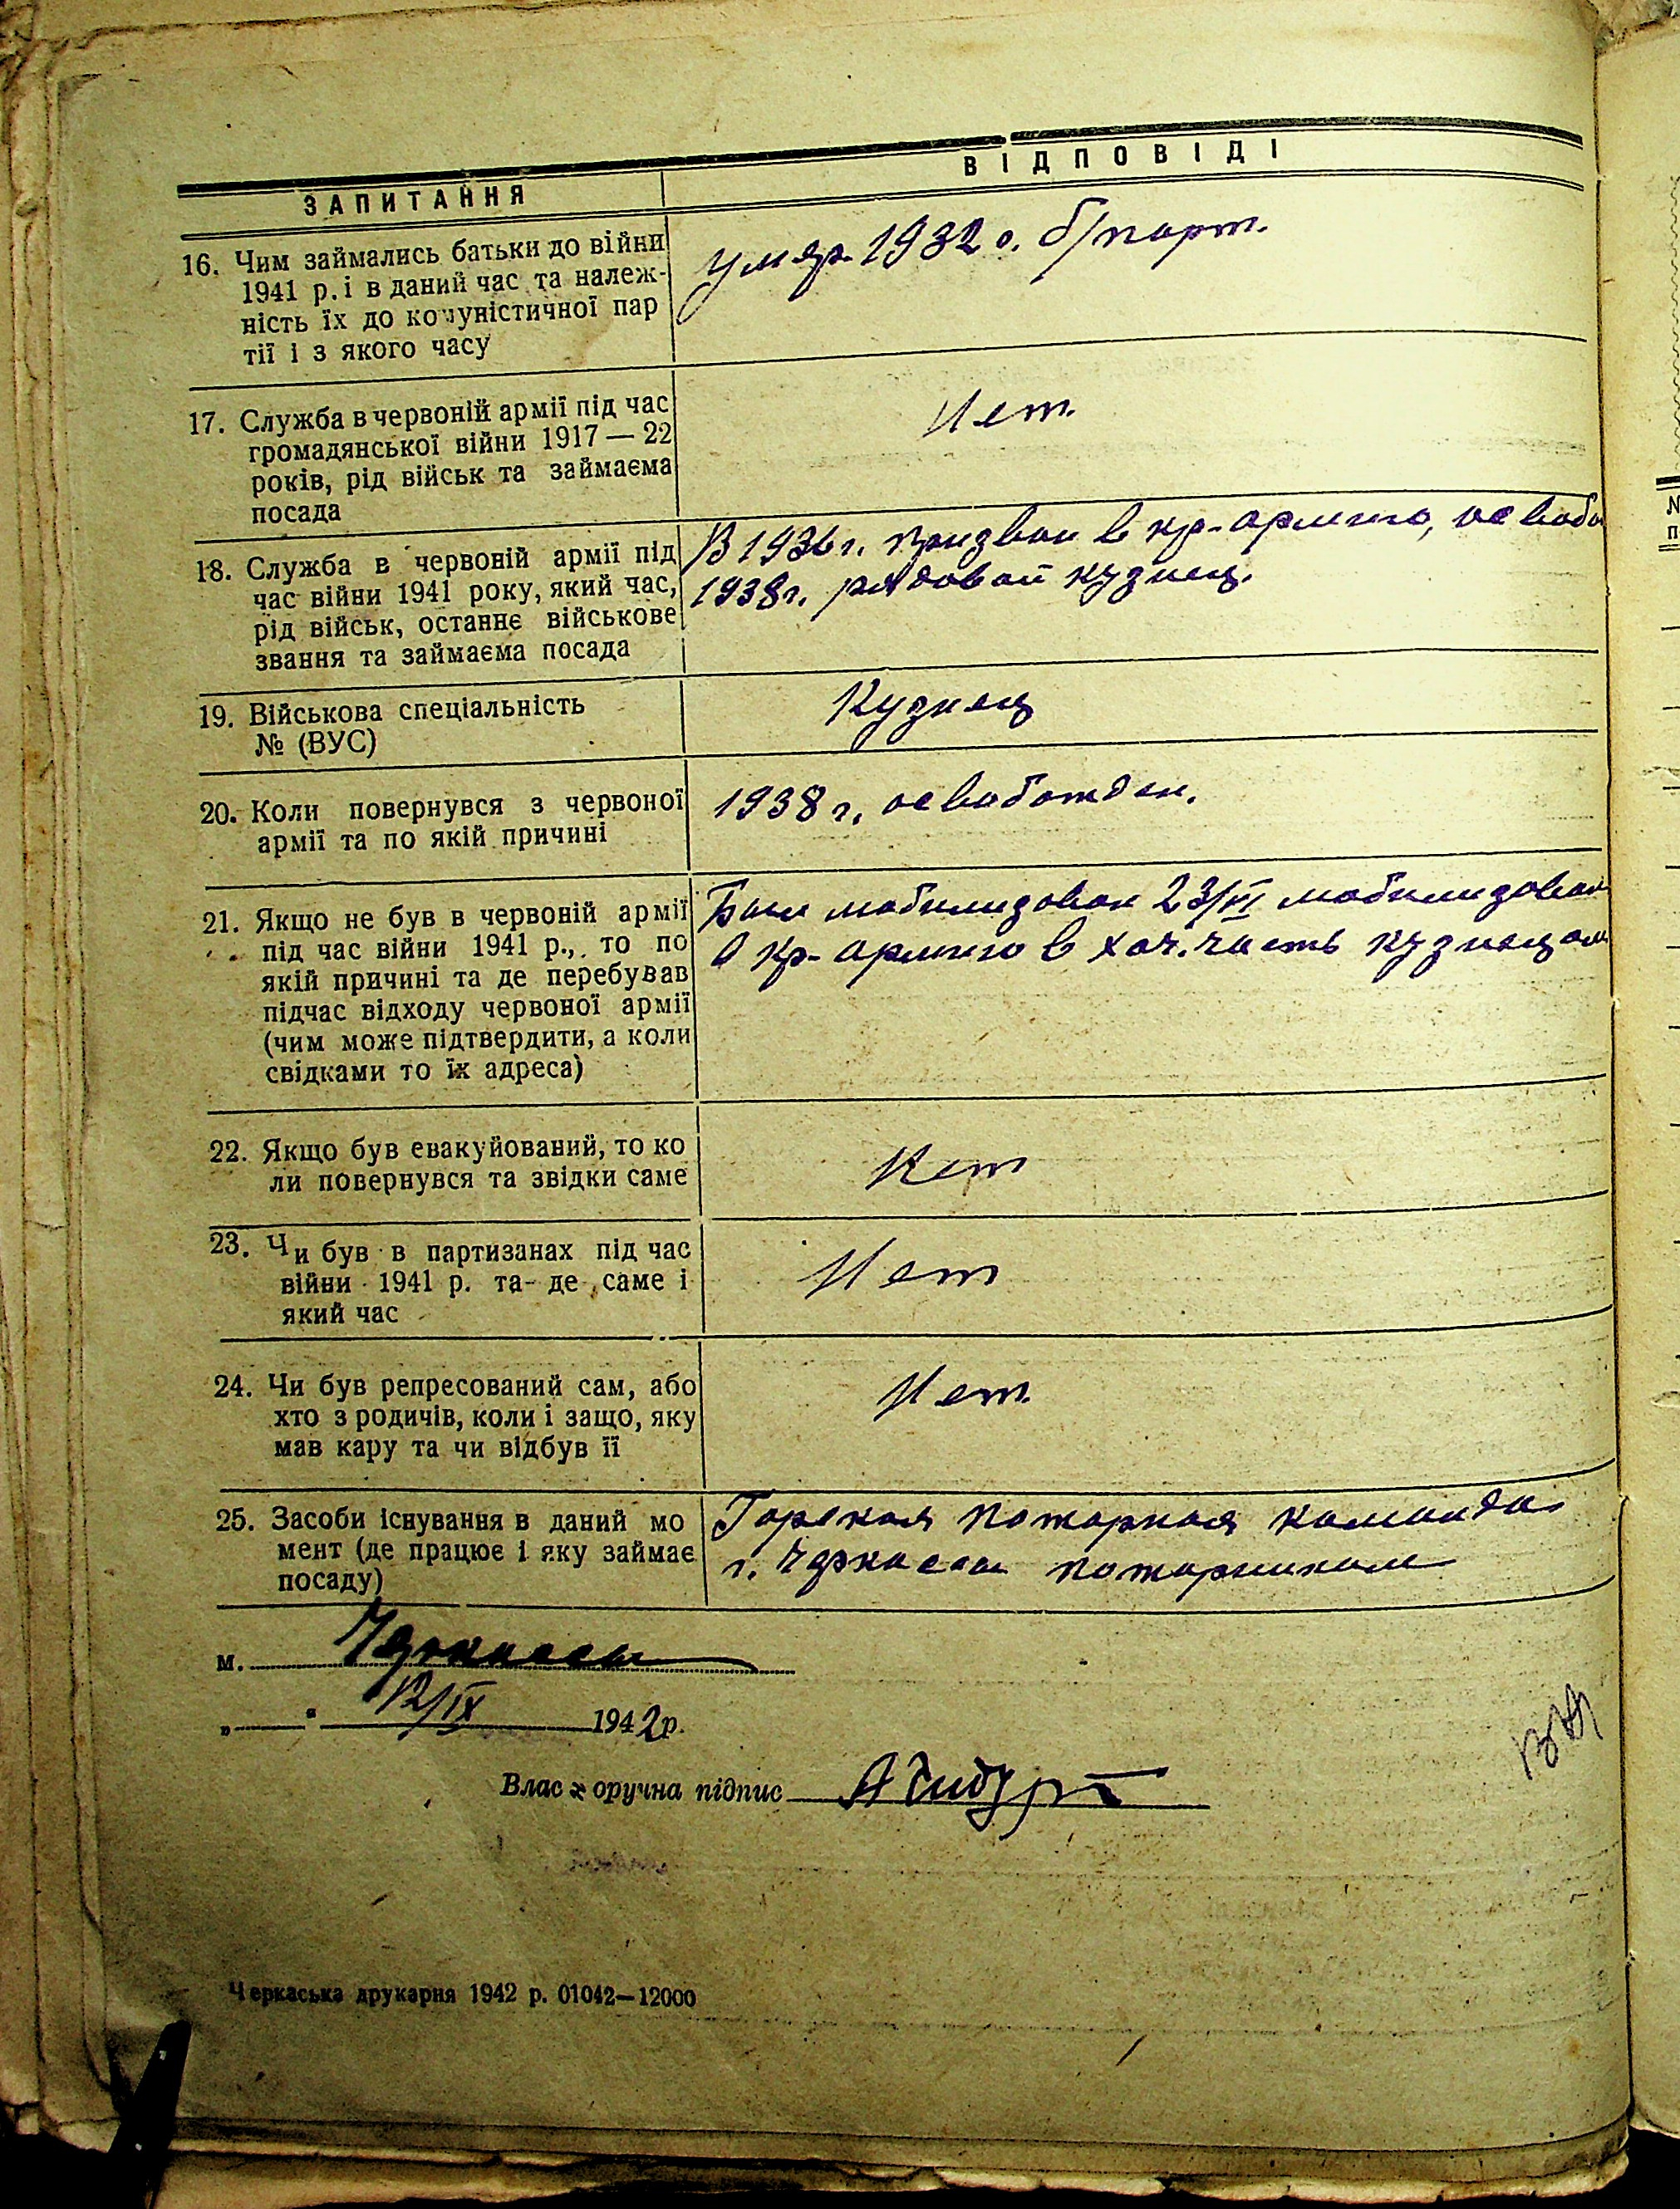 ЗАПИТАННЯ
ВІДПОВІДІ
16. Чим займались батьки до війни
1941 р. і в даний час та належ-
ність їх до комуністичної пар
тії і з якого часу
умер. 1932 г. б/парт.
17. Служба в червоній армії під час
громадянської війни 1917 — 22
років, рід військ та займаєма
посада
Нет.
18. Служба в червоній армії під
час війни 1941 року, який час,
рід військ, останнє військове
звання та займаєма посада
В 1936 г. призван в кр-армию, освобо
1938 г. рядовой кузнец.
19. Військова спеціальність
№ (ВУС)
Кузнец
20. Коли повернувся з червоної
армії та по якій причині
1938 г. освобожден.
21. Якщо не був в червоній армії
під час війни 1941 р., то по
якій причині та де перебував
підчас відходу червоної армії
(чим може підтвердити, а коли
свідками то їх адреса)
Был мобилизован 23/VI мобилизован
в кр-армию в хоз. часть кузнецом
22. Якщо був евакуйований, то ко
ли повернувся та звідки саме
Нет
23. Чи був в партизанах під час
війни 1941 р. та де саме і
який час
Нет
24. Чи був репресований сам, або
хто з родичів, коли і защо, яку
мав кару та чи відбув її
Нет.
25. Засоби існування в даний мо
мент (де працює і яку займає
посаду)
Горская пожарная команда
г. Черкассы пожарником
м. Черкассы
„ “ 12/IX 1942 р.
Власноручна підпис
Черкаська друкарня 1942 р. 01042—12000